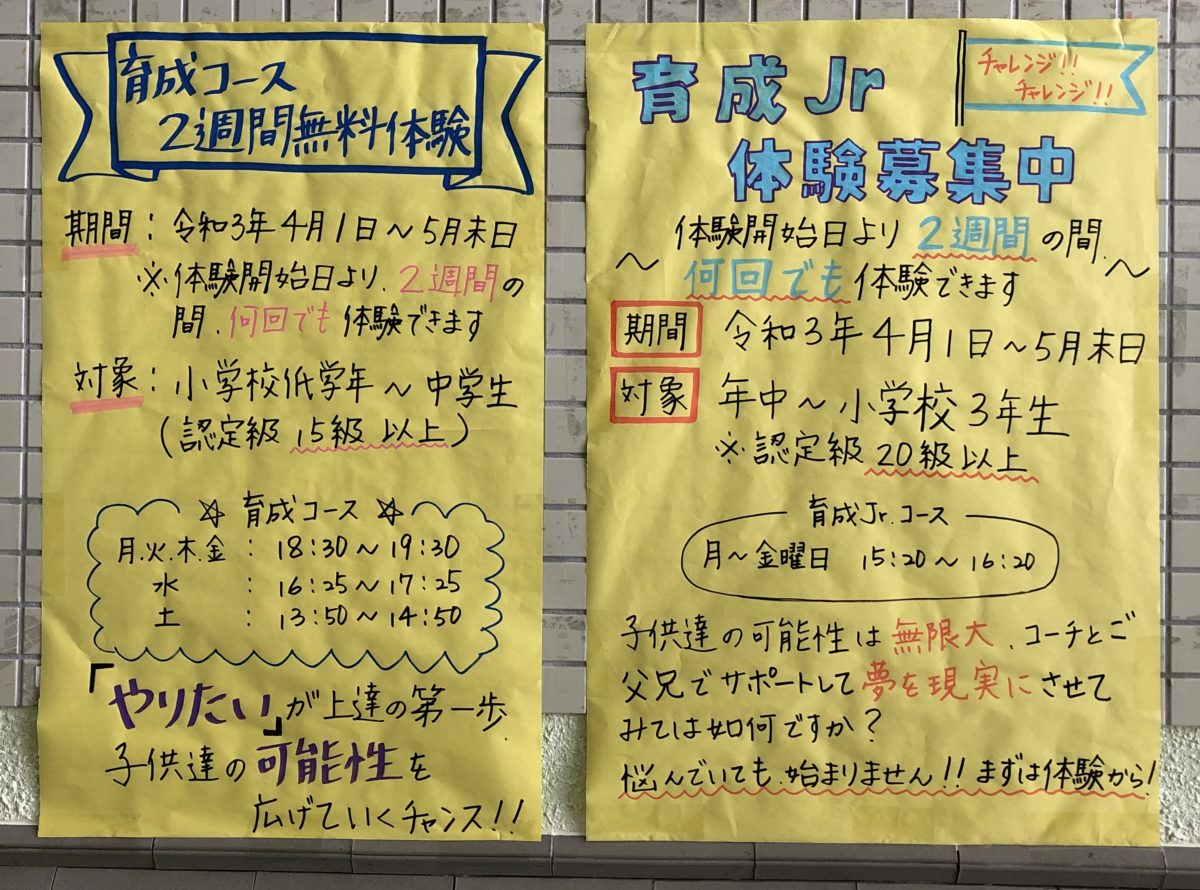 育成コース
2週間無料体験
期間：令和3年4月1日～5月末日
※体験開始日より、2週間の
間、何回でも体験できます
対象：小学校低学年～中学生
（認定級15級以上）
☆ 育成コース ☆
月.火.木.金 : 18:30～19:30
水 : 16:25～17:25
土 : 13:50～14:50
「やりたい」が上達の第一歩、
子供達の可能性を
広げていくチャンス!!
育成Jr
チャレンジ!!
チャレンジ!!
体験募集中
～体験開始日より2週間の間、～
何回でも体験できます
期間 令和3年4月1日～5月末日
対象 年中～小学校3年生
※認定級20級以上
育成Jr.コース
月～金曜日 15:20～16:20
子供達の可能性は無限大、コーチとご
父兄でサポートして夢を現実にさせて
みては如何ですか？
悩んでいても、始まりません!!まずは体験から!